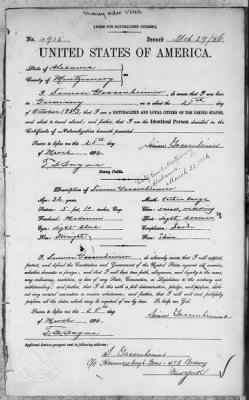 [FORM FOR NATURALIZED CITIZEN.]
No. 4915 Issued Mch 29/86
UNITED STATES OF AMERICA.
State of Alabama
County of Montgomery
I, Simon Gassenheimer do swear that I was born
in Germany on or about the 27th day
of October 1857, that I am a NATURALIZED AND LOYAL CITIZEN OF THE UNITED STATES,
and about to travel abroad; and further, that I am the Identical Person described in the
Certificate of Naturalization herewith presented.
Sworn to before me this 25th day
of March 1886.
Simon Gassenheimer
Notary Public.
Description of Simon Gassenheimer
Age: 28 years. Mouth: rather large
Stature: 5 feet inches, Eng. Chin: small
Forehead: Medium
Eyes: light blue Complexion: Fair
Nose: Straight Face: Thin
I, Simon Gassenheimer, do solemnly swear that I will support,
protect, and defend the Constitution and Government of the United States against all enemies,
whether domestic or foreign; and that I will bear true faith, allegiance, and loyalty to the same,
any ordinance, resolution, or law of any State, Convention, or Legislature to the contrary not-
withstanding; and further, that I do this with a full determination, pledge, and purpose, without
any mental reservation or evasion whatsoever; and further, that I will well and faithfully
perform all the duties which may be required of me by law. So help me God.
Sworn to before me this 25
day of March 1886.
Simon Gassenheimer
Applicant desires passport sent to following address:
S Gassenheimer
C/o Bros 478 Broadway
New York